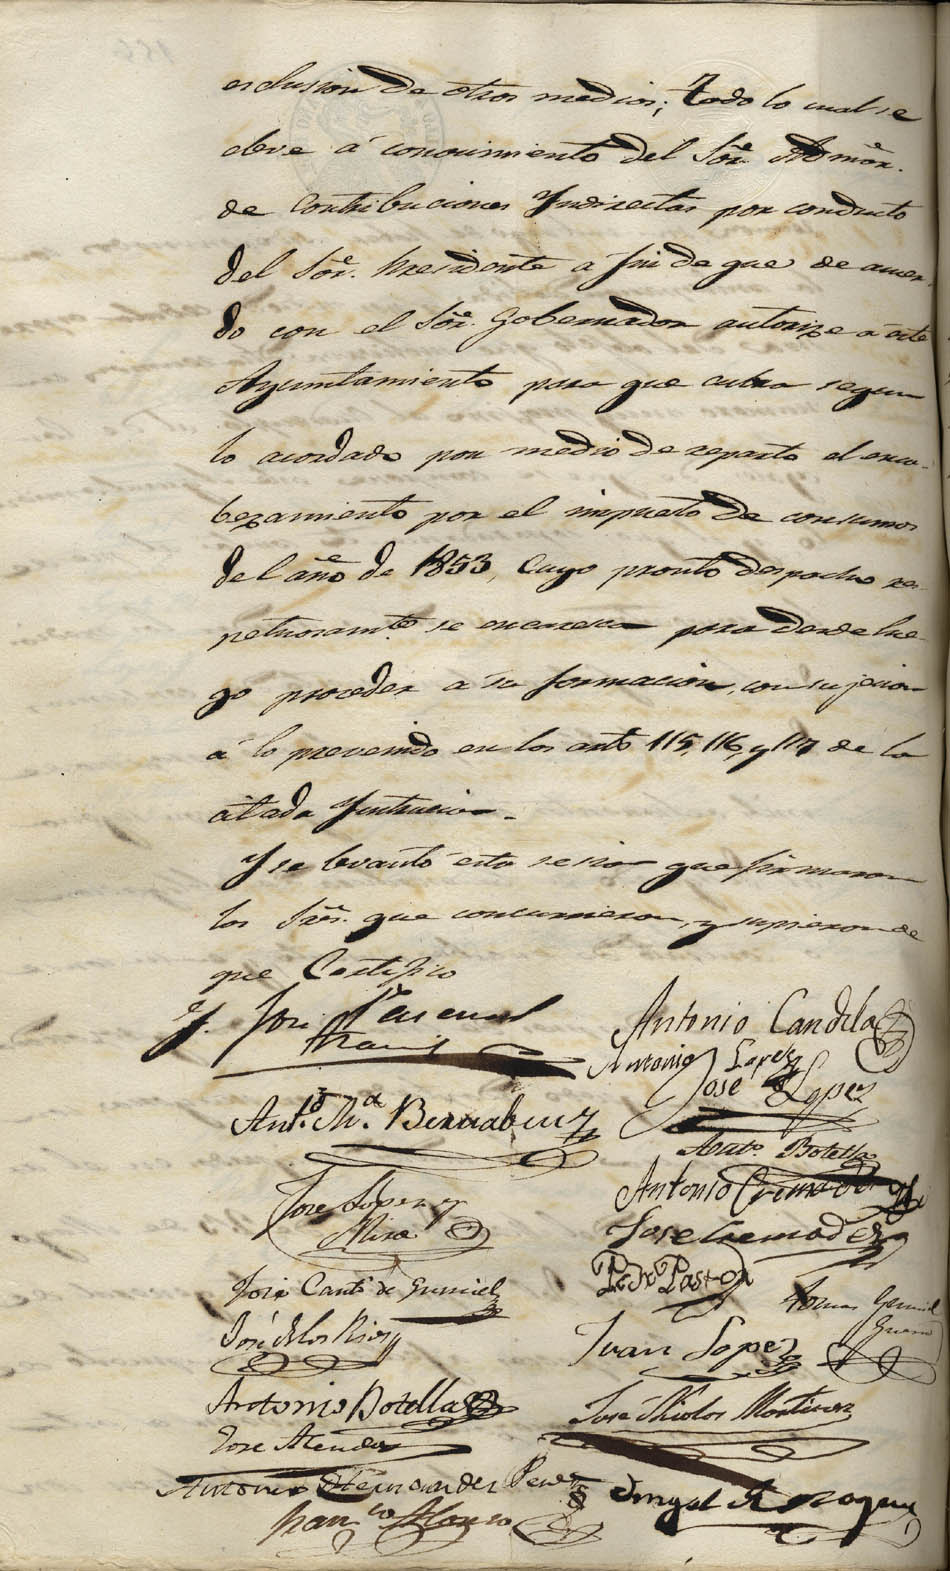 esclusion de otros medios; todo lo cual se
eleve á conocimiento del Sōr. Admōr.
de Contribuciones Yndirectas por conducto
del Sōr. Presidente a fin de que de acuer
do con el Sōr. Gobernador autorize á este
Ayuntamiento para que cubra segun
lo acordado por medio de reparto el enca-
bezamiento por el impuesto de consumos
del año de 1853, Cuyo pronto despacho res-
petuosamte. se encarece para desde lue-
go proceder á su formacion, con sujecion
á lo prevenido en los arts 115, 116, y 117 de la
citada Yntruccion.
Y se levantó esta sesion que firmaron
los Sres. que concurrieron, y supieron de
que Certifico
José Pascual
Antonio Candela
Antonio Lopez
José Lopez
Anto. Ma. Bernabeu
Anto. Botella
Antonio Cremades
Jose Lopez y
Mira
Jose Cremades
Pedro Pastor
José Cantó de Gumiel
Tomas Gumiel
José de los Rios
Juan Lopez
Antonio Botella
José Nicolas Martinez
Jose
Antonio Hernandez Perez
Franco. Alonso